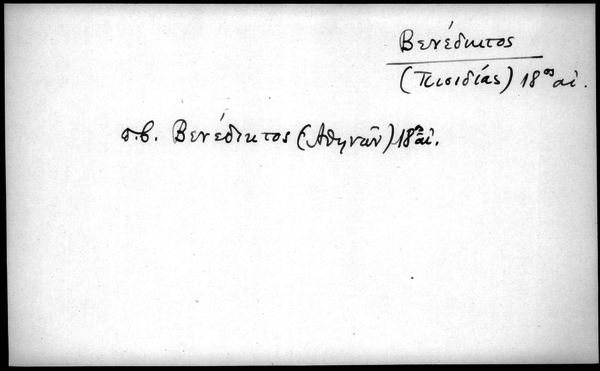 Βενέδικτος
(Πισιδίας) 18ος αἰ.
σ.β. Βενέδικτος (Ἀθηνῶν) 18ος αἰ.